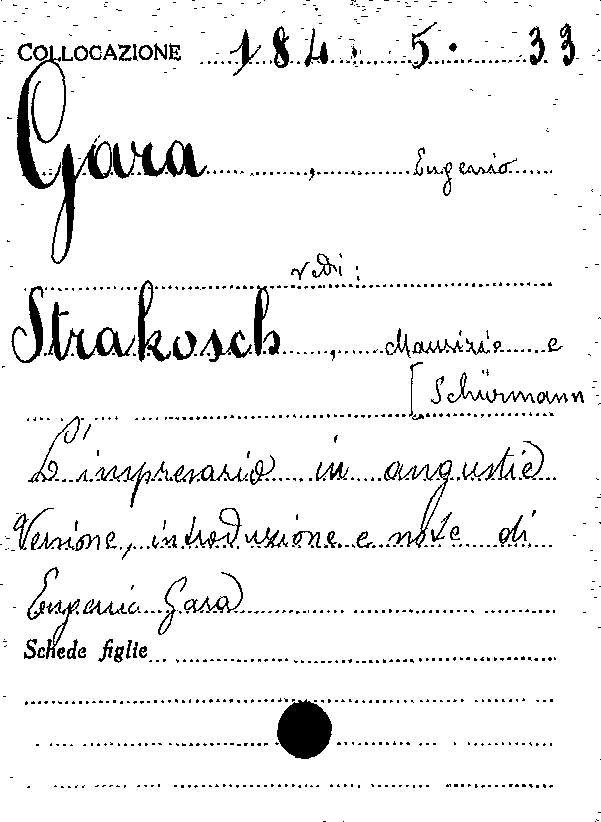 COLLOCAZIONE 184. 5. 33
Gara, Eugenio
vedi:
Strakosch, Maurizio e
[Schürmann
L'impresario in angustie
Versione, introduzione e note di
Eugenio Gara
Schede figlie